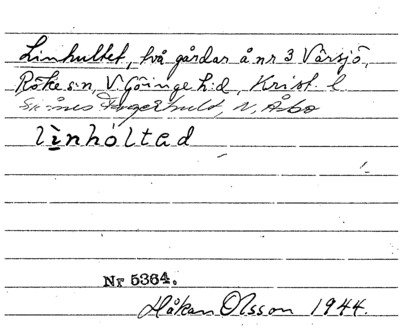 Linhultet, två gårdar å nr 3 Vårsjö,
Röke s:n, V. Göinge h:d, Krist. l
Skånes Fagerhult, N. Åsbo
lìnhóltad
Nr 5364.
Håkan Olsson 1944.